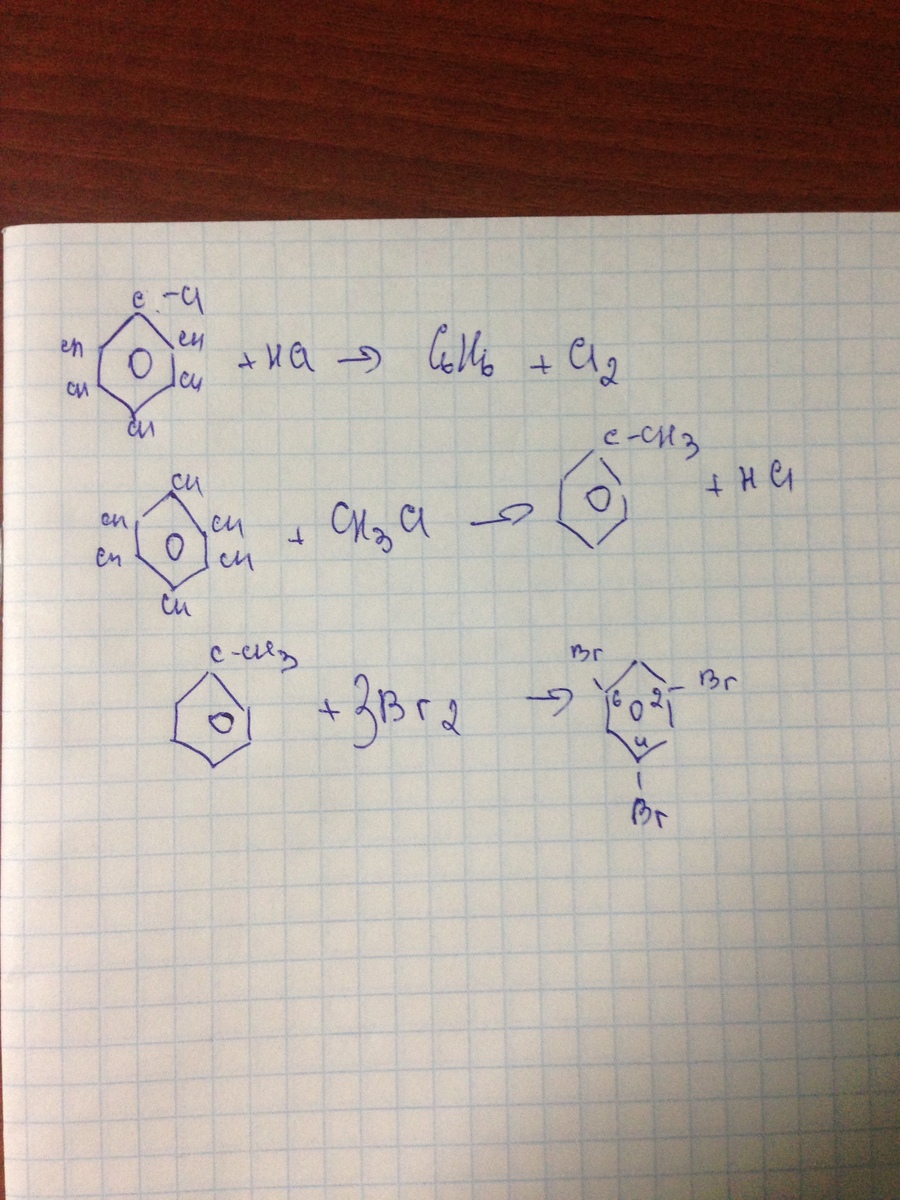 C-Cl
CH CH
CH CH
CH
+ HCl → C₆H₆ + Cl₂
CH
CH CH
CH CH
CH
+ CH₃Cl → C-CH₃ + HCl
C-CH₃ + 3Br₂ → Br 6 2 Br
4
Br